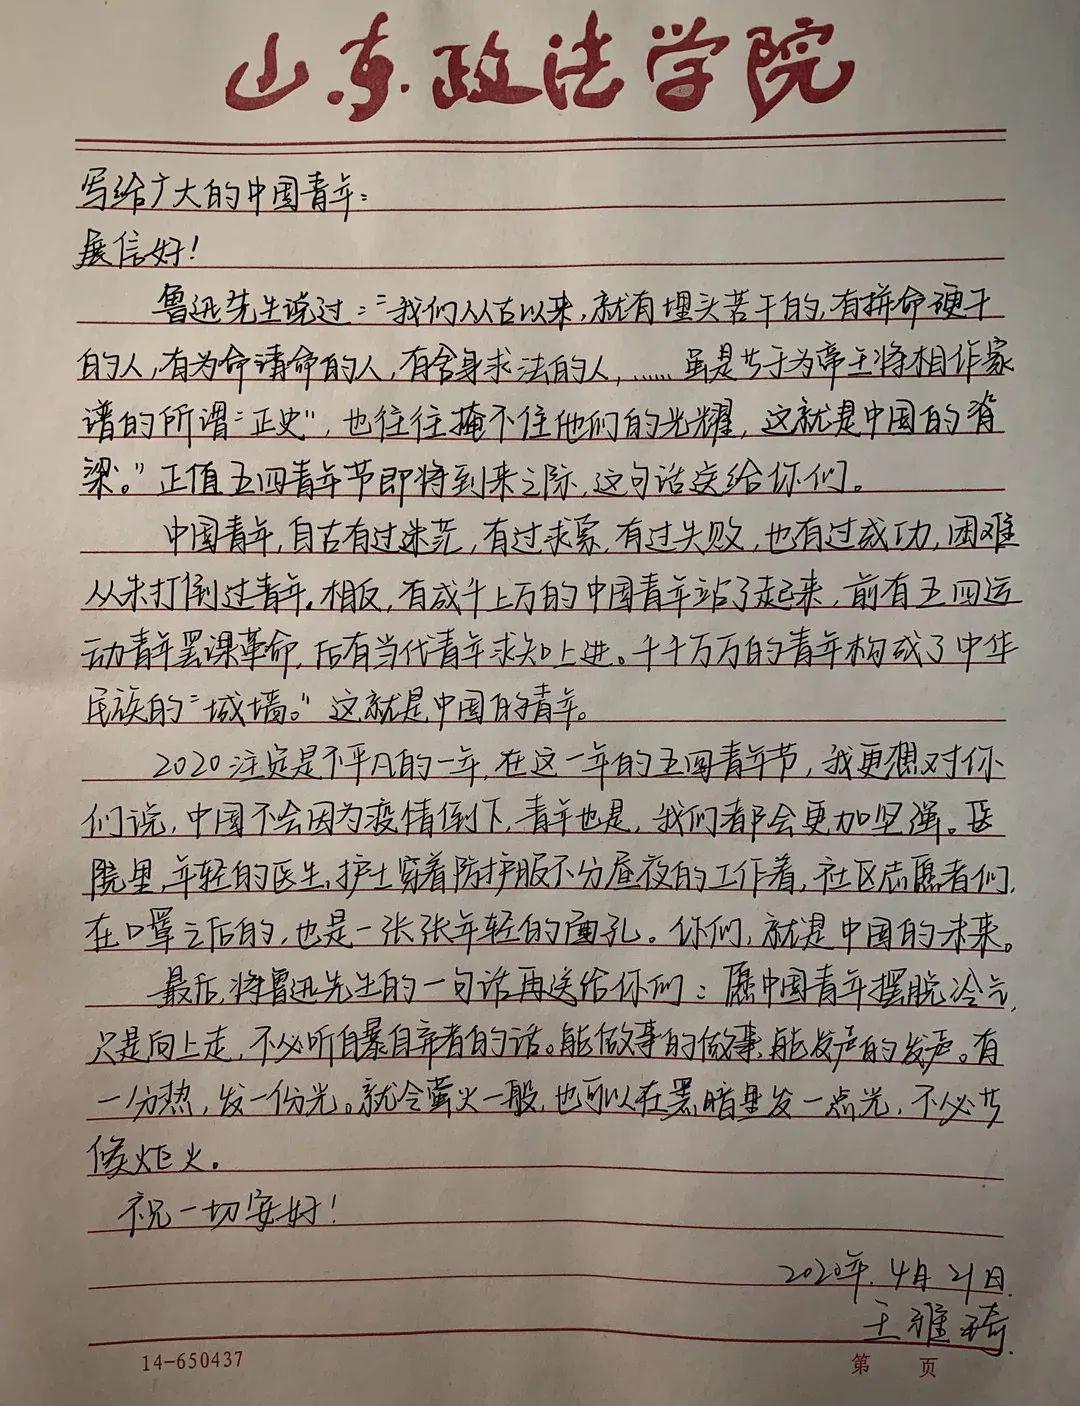 山东政法学院
写给广大的中国青年：
展信好！
鲁迅先生说过："我们从古以来，就有埋头苦干的，有拼命硬干
的人，有为命请命的人，有舍身求法的人，……虽是等于为帝王将相作家
谱的所谓"正史"，也往往掩不住他们的光耀，这就是中国的脊
梁。"正值五四青年节即将到来之际，这句话送给你们。
中国青年，自古有过迷茫，有过求索，有过失败，也有过成功，困难
从未打倒过青年。相反，有成千上万的中国青年站了起来，前有五四运
动青年罢课革命，后有当代青年求知上进。千千万万的青年构成了中华
民族的"城墙。"这就是中国的青年。
2020注定是不平凡的一年，在这一年的五四青年节，我更想对你
们说，中国不会因为疫情倒下，青年也是，我们都会更加坚强。医
院里，年轻的医生，护士穿着防护服不分昼夜的工作着，社区志愿者们，
在口罩之后的，也是一张张年轻的面孔。你们，就是中国的未来。
最后，将鲁迅先生的一句话再送给你们：愿中国青年摆脱冷气，
只是向上走，不必听自暴自弃者的话。能做事的做事，能发声的发声。有
一分热，发一份光。就令萤火一般，也可以在黑暗里发一点光，不必等
候炬火。
祝一切安好！
2020年.4月21日.
王雅琦.
14-650437 第 页